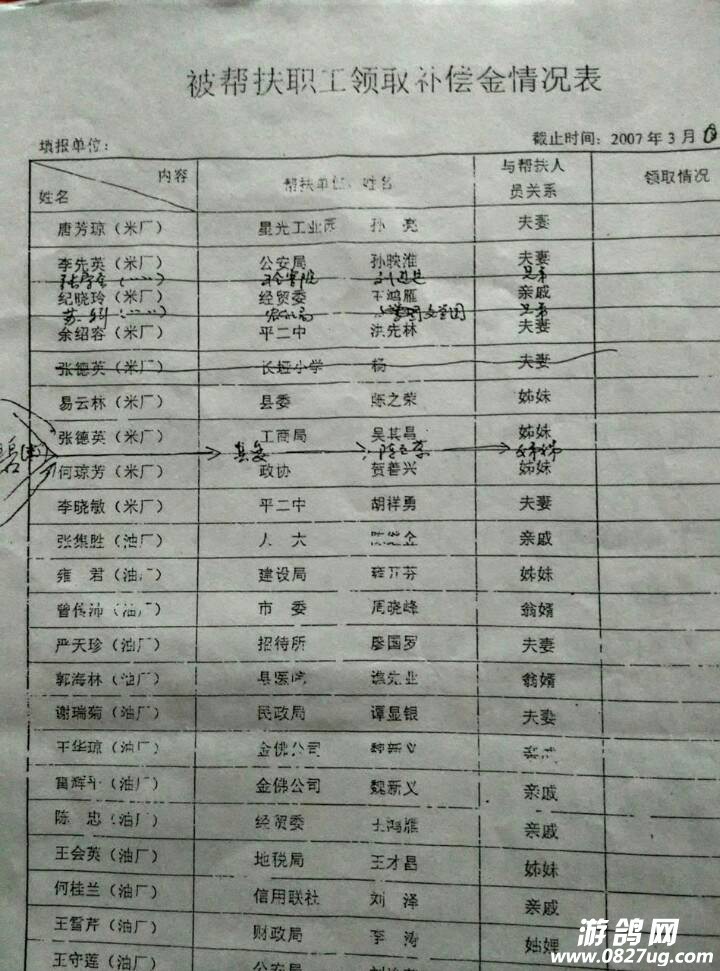 被帮扶职工领取补偿金情况表
填报单位： 截止时间：2007年3月
内容 姓名 帮扶单位、姓名 与帮扶人员关系 领取情况
唐芳琼（米厂） 星光工业园 孙 亮 夫妻
李先英（米厂） 公安局 孙映淮 夫妻
兄弟
纪晓玲（米厂） 经贸委 王鸿雁 亲戚
兄弟
余绍容（米厂） 平二中 洪先林 夫妻
张德英（米厂） 长垭小学 杨 夫妻
易云林（米厂） 县委 陈之荣 姊妹
张德英（米厂） 工商局 吴其昌 姊妹
县委 姊妹
何琼芳（米厂） 政协 贺善兴 姊妹
李晓敏（米厂） 平二中 胡祥勇 夫妻
张集胜（油厂） 人 大 亲戚
雍 君（油厂） 建设局 雍开芬 姊妹
曾传沛（油厂） 市 委 周晓峰 翁婿
严天珍（油厂） 招待所 廖国罗 夫妻
郭海林（油厂） 县医院 谯先业 翁婿
谢瑞菊（油厂） 民政局 谭显银 夫妻
王华琼（油厂） 金佛公司 魏新义 亲戚
辉平（油厂） 金佛公司 魏新义 亲戚
陈 忠（油厂） 经贸委 王鸿雁 亲戚
王会英（油厂） 地税局 王才昌 姊妹
何桂兰（油厂） 信用联社 刘 泽 亲戚
王雪芹（油厂） 财政局 李 涛 妯娌
王守莲（油厂） 公安局
游鸽网
www.0827ug.com